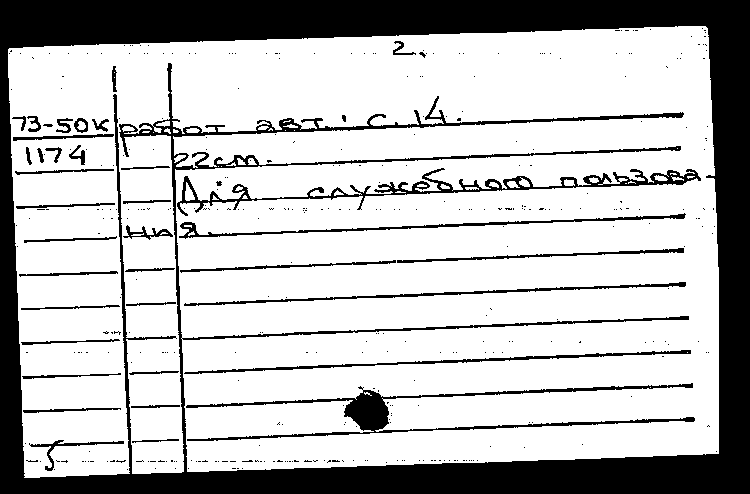 2.
73-50к работ авт.: с. 14.
1174 22см.
Для служебного пользова-
ния.
5